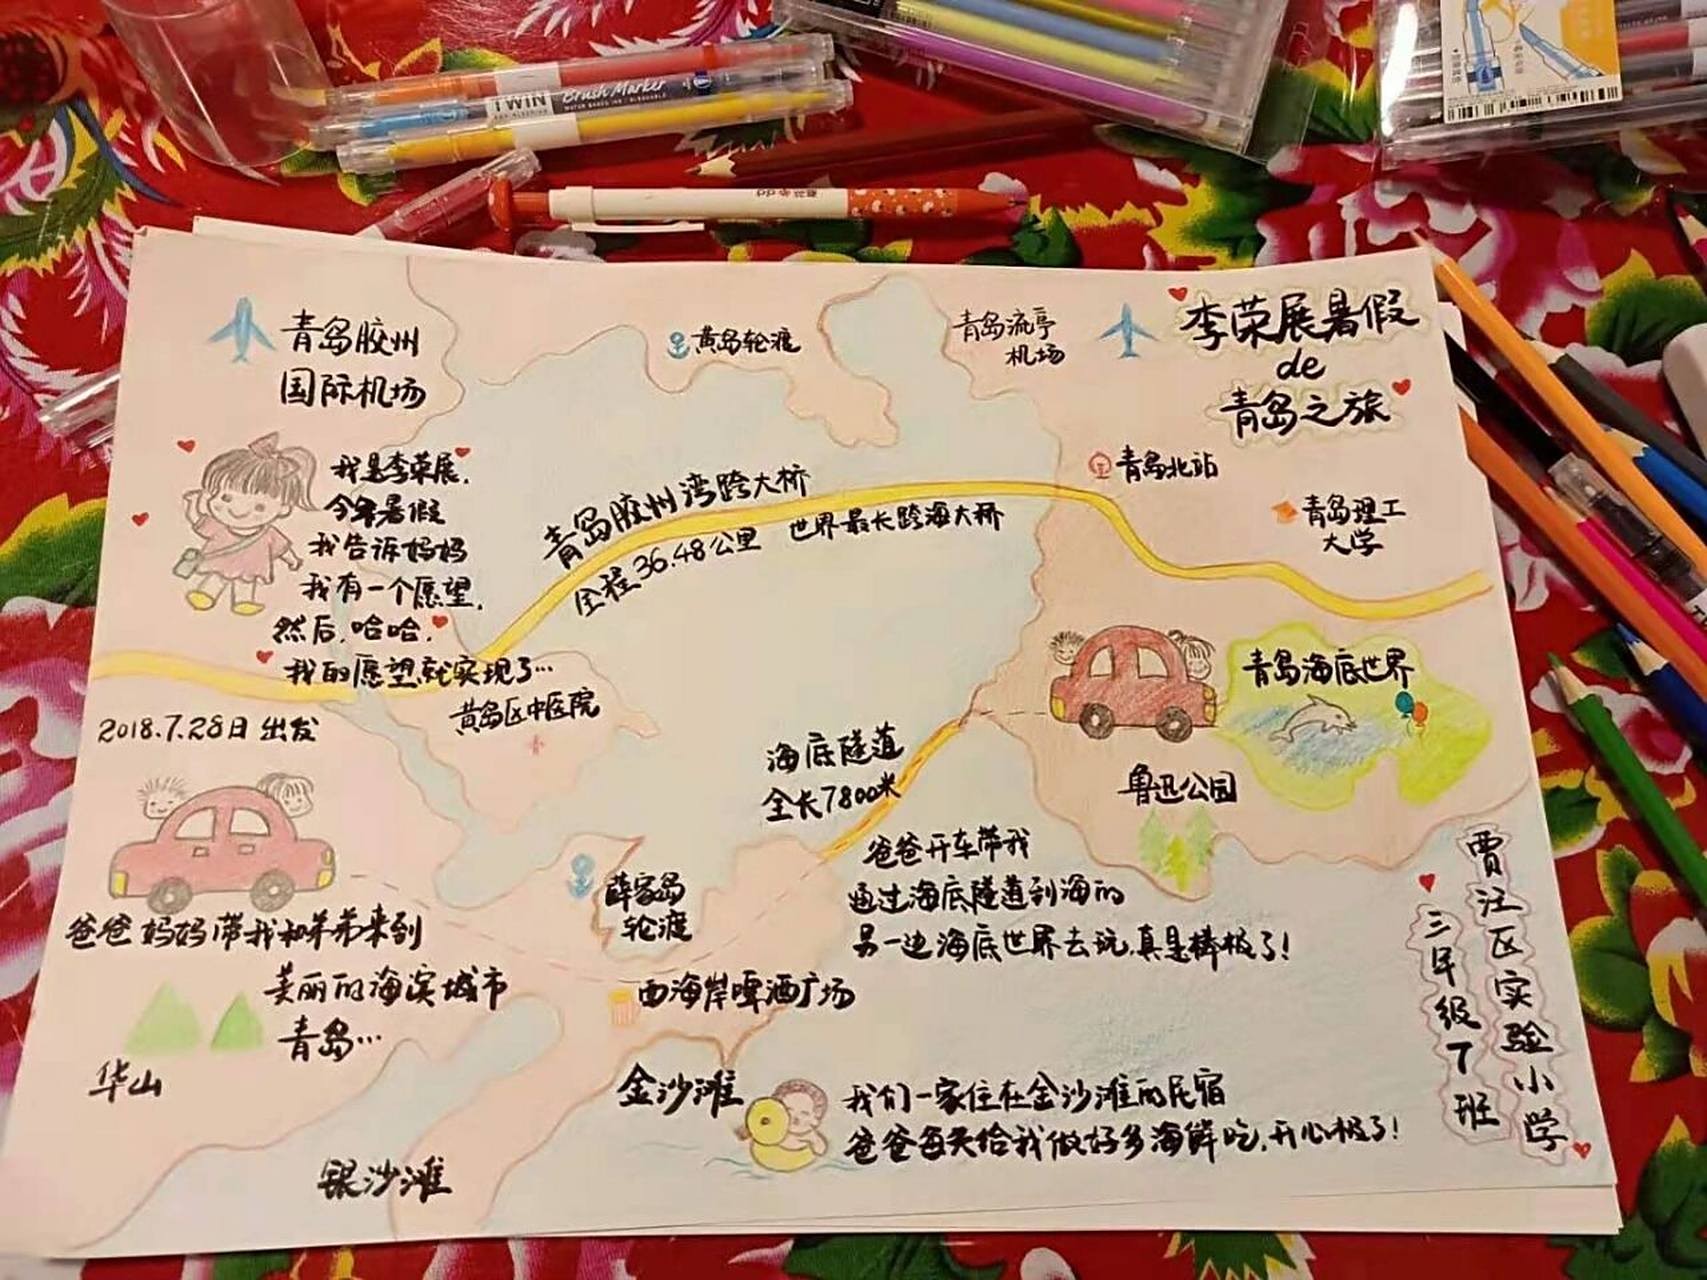 TWIN
Brush Marker
青岛胶州
国际机场
黄岛轮渡
青岛流亭
机场
李荣展暑假
de
青岛之旅
我是李荣展,
今年暑假
我告诉妈妈
我有一个愿望,
然后,哈哈,
我的愿望就实现了…
青岛胶州湾跨大桥
全程36.48公里
世界最长跨海大桥
青岛北站
青岛理工
大学
黄岛区中医院
2018.7.28日出发
海底隧道
全长7800米
青岛海底世界
鲁迅公园
爸爸妈妈带我和弟弟来到
美丽的海滨城市
青岛…
华山
薛家岛
轮渡
爸爸开车带我
通过海底隧道到海的
另一边海底世界去玩,真是棒极了!
西海岸啤酒广场
金沙滩
我们一家住在金沙滩的民宿
爸爸每天给我做好多海鲜吃,开心极了!
银沙滩
贾汪区实验小学
三年级7班